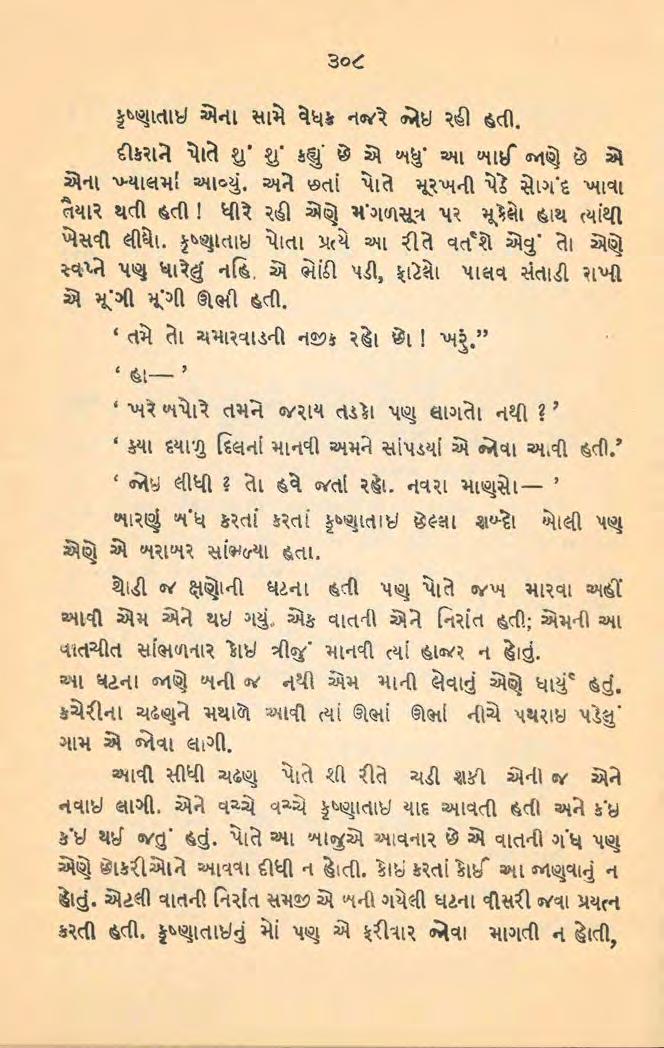 ૩૦૮
કૃષ્ણાતાઇ એના સામે વેધક નજરે જોઇ રહી હતી.
દીકરાને પોતે શું શું કહ્યું છે એ બધું આ બાઈ જાણે છે એ
એના ખ્યાલમાં આવ્યું. અને છતાં પોતે મૂરખની પેઠે સોગંદ ખાવા
તૈયાર થતી હતી! ધીરે રહી એણે મંગળસૂત્ર પર મૂકેલો હાથ ત્યાંથી
ખેસવી લીધો. કૃષ્ણાતાઇ પોતા પ્રત્યે આ રીતે વર્તશે એવું તો એણે
સ્વપ્ને પણ ધારેલું નહિ. એ ભોંઠી પડી, ફાટેલો પાલવ સંતાડી રાખી
એ મૂંગી મૂંગી ઊભી હતી.
‘ તમે તો ચમારવાડની નજીક રહો છો! ખરું.”
‘ હા— ’
‘ ખરે બપોરે તમને જરાય તડકો પણ લાગતો નથી ? ’
‘ કયા દયાળુ દિલનાં માનવી અમને સાંપડયાં એ જોવા આવી હતી.’
‘ જોઇ લીધી ? તો હવે જતાં રહો. નવરા માણસો— ’
બારણું બંધ કરતાં કરતાં કૃષ્ણાતાઇ છેલ્લા શબ્દો બોલી પણ
એણે એ બરાબર સાંભળ્યા હતા.
થોડી જ ક્ષણોની ઘટના હતી પણ પોતે જખ મારવા અહીં
આવી એમ એને થઇ ગયું. એક વાતની એને નિરાંત હતી; એમની આ
વાતચીત સાંભળનાર કોઇ ત્રીજું માનવી ત્યાં હાજર ન હોતું.
આ ઘટના જાણે બની જ નથી એમ માની લેવાનું એણે ધાર્યું હતું.
કચેરીના ચઢણને મથાળે આવી ત્યાં ઊભાં ઊભાં નીચે પથરાઇ પડેલું
ગામ એ જોવા લાગી.
આવી સીધી ચઢણ પોતે શી રીતે ચડી શકી એની જ એને
નવાઇ લાગી. એને વચ્ચે વચ્ચે કૃષ્ણાતાઇ યાદ આવતી હતી અને કંઇ
કંઇ થઈ જતું હતું. પોતે આ બાજુએ આવનાર છે એ વાતની ગંધ પણ
એણે છોકરીઓને આવવા દીધી ન હોતી. કોઇ કરતાં કોઈ આ જાણવાનું ન
હોતું. એટલી વાતની નિરાંત સમજી એ બની ગયેલી ઘટના વીસરી જવા પ્રયત્ન
કરતી હતી. કૃષ્ણાતાઇનું મોં પણ એ ફરીવાર જોવા માગતી ન હોતી,